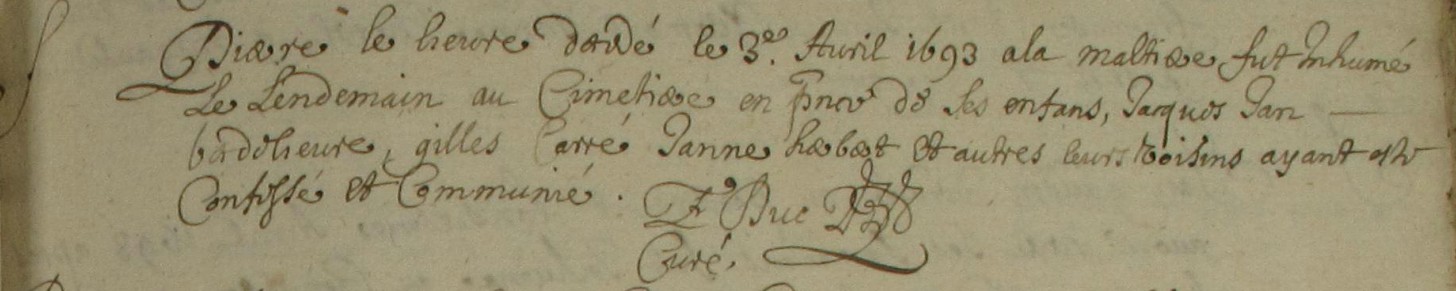 Pierre le lievre decedé le 3e. Auril 1693 ala maltiere fut Inhumé
Le Lendemain au Cimetiere en pnce de ses enfans, Jacques Jan
lieure, gilles Carré Janne et autres leurs voisins ayant este
Confessé et Communié. Duc
Curé.